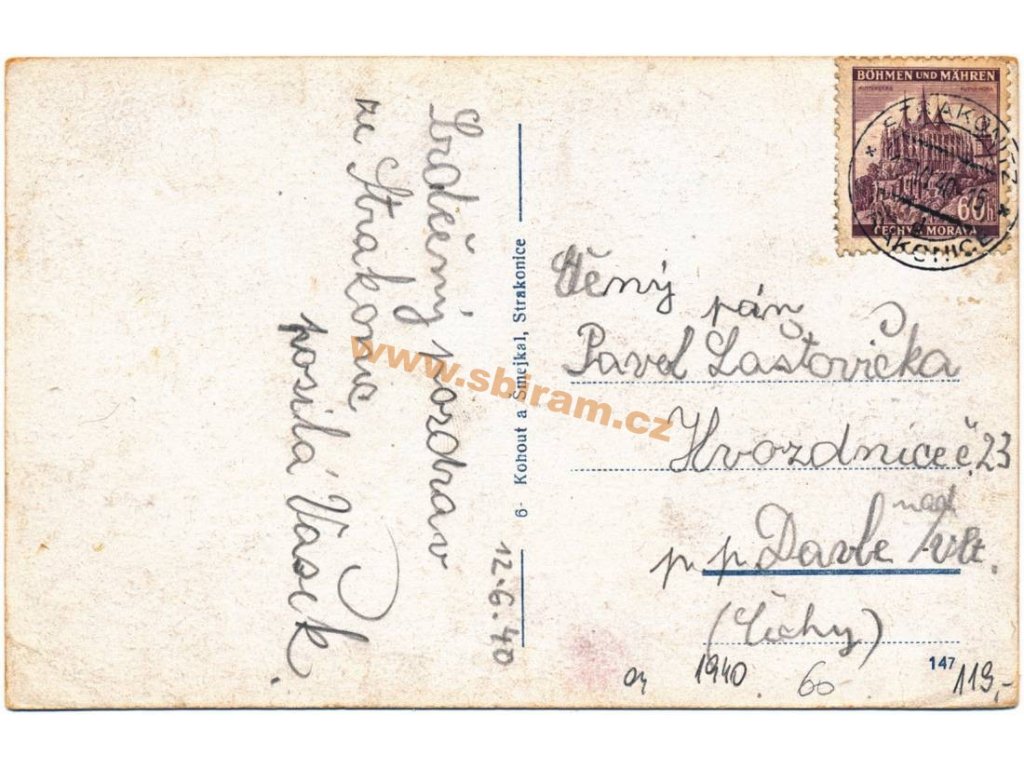 Srdečný pozdrav
ze Strakonic
posílá Vašek.
12.6.40
6- Kohout a Smejkal, Strakonice
BÖHMEN UND MÄHREN
60h
ČECHY A MORAVA
STRAKONITZ
STRAKONICE
Ctěný pán
Pavel Laštovička
Hvozdnice č. 23
p. p. Davle nad/Vlt.
(Čechy)
147
1940
60
119,-
www.sbiram.cz